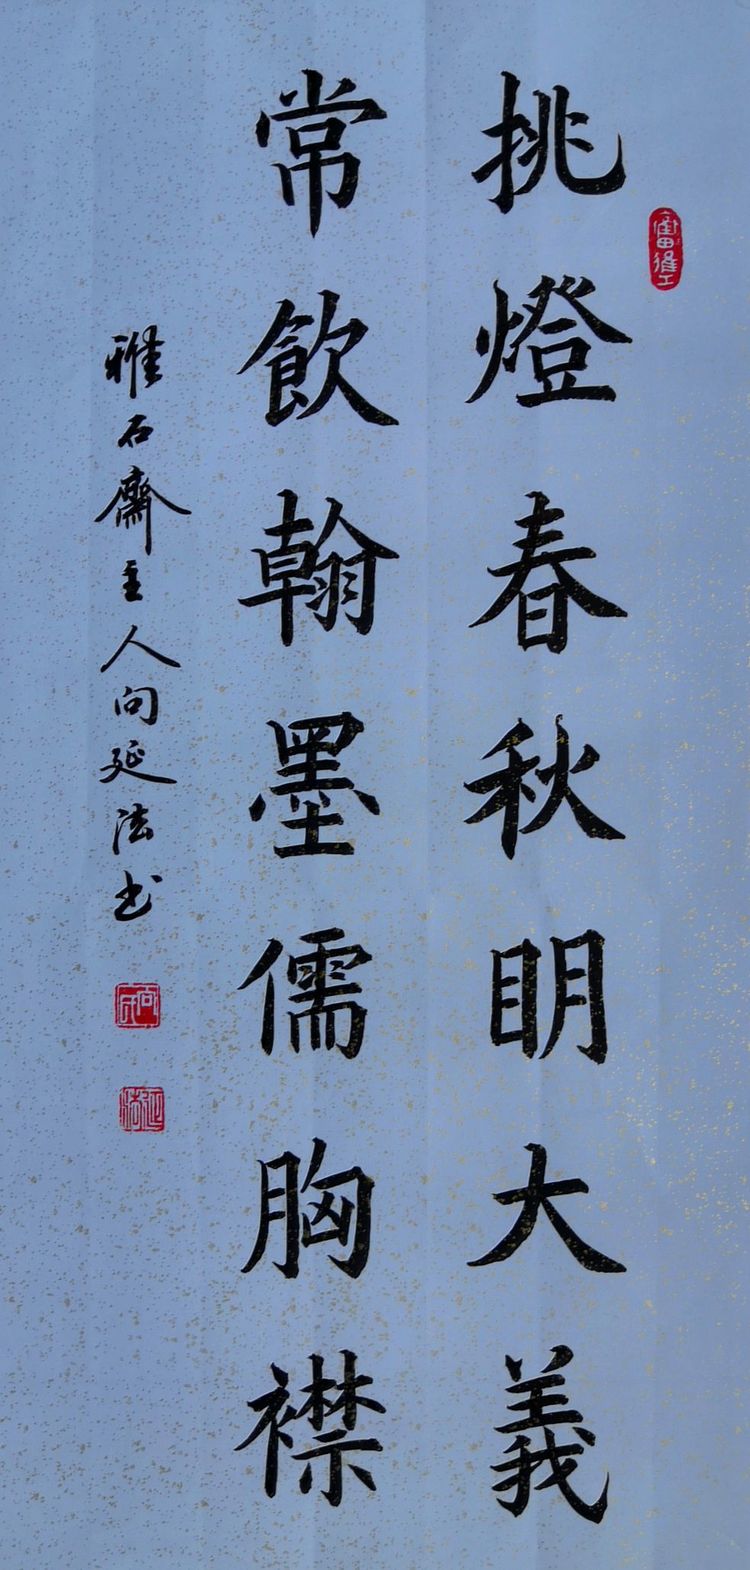 挑燈春秋眀大義
常飲翰墨儒胸襟
雅石齋主人向延法书
向氏
延法